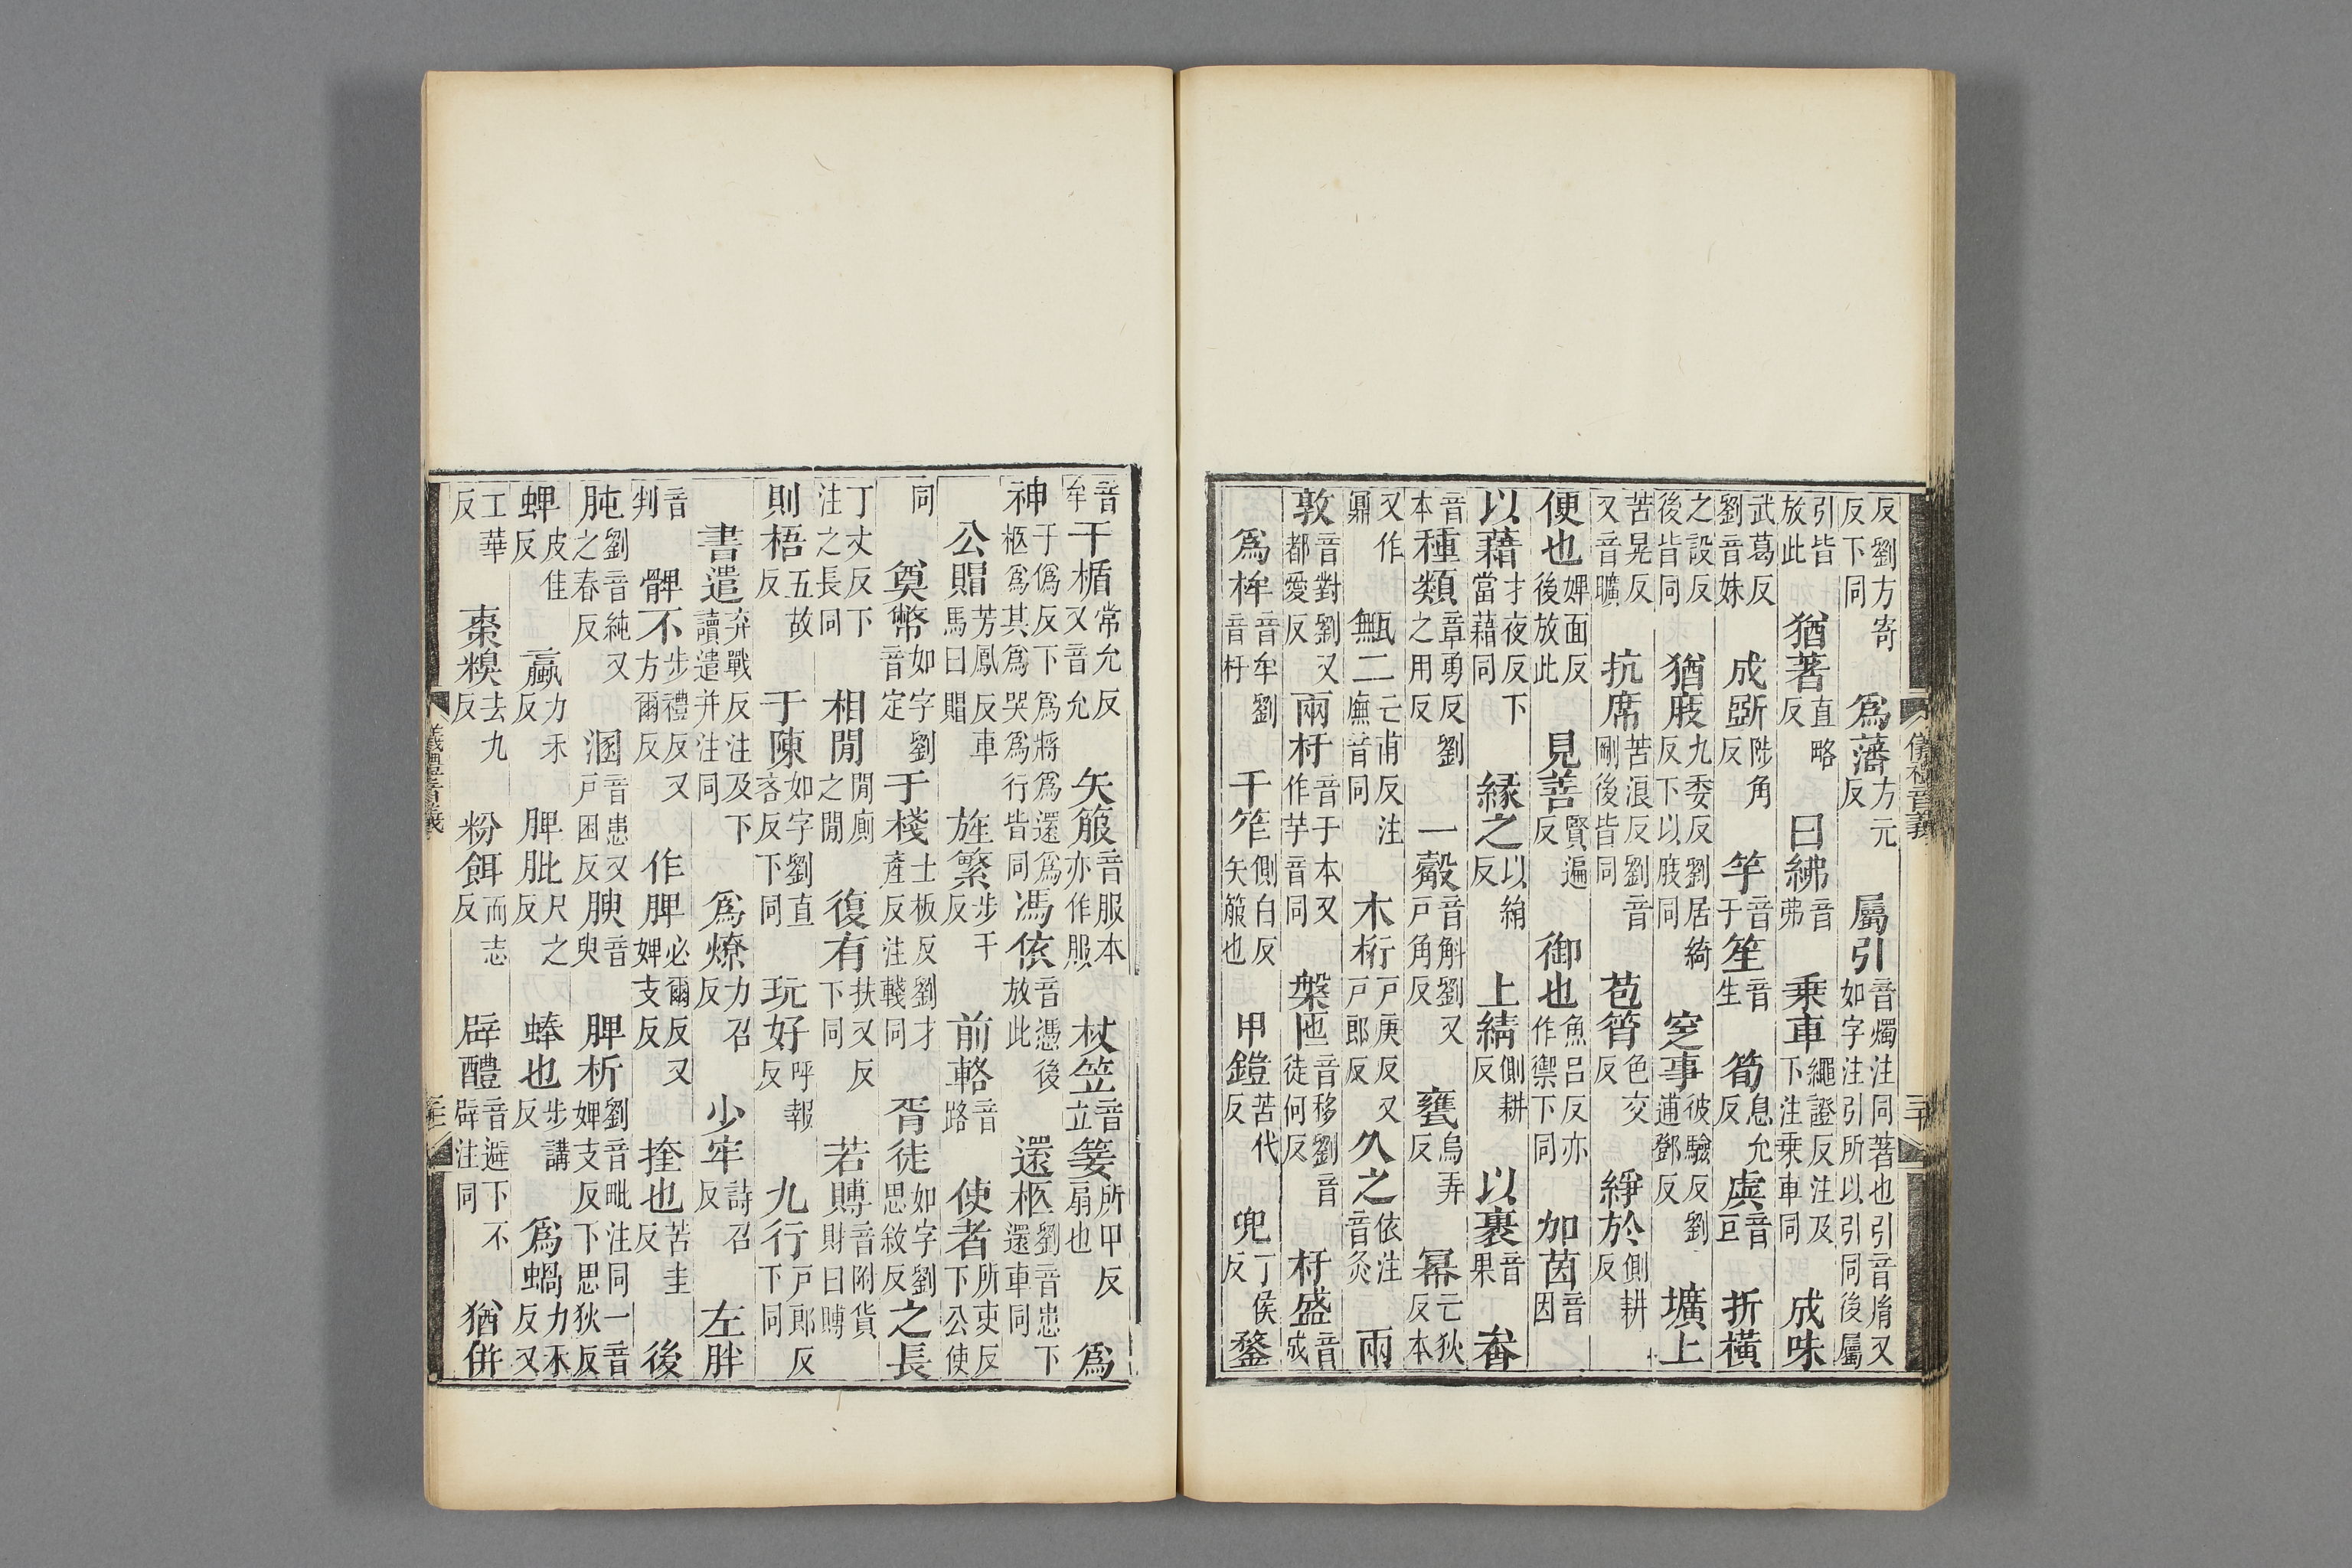 反劉方寄反下同爲藩方元反屬引音燭注同著也引音胤又如字注引所以引同後屬
引皆放此猶著直略反曰紼音弗乗車繩證反注及下注乗車同成味
武葛反劉音妹成斲陟角反竽音于笙音生筍息允反虡音巨折横
之設反後皆同猶庪九委反劉居綺反下以庪同窆事彼驗反劉逋鄧反壙上
苦晃反又音曠抗席苦浪反劉音剛後皆同苞筲色交反綪於側耕反
便也婢面反後放此見善賢遍反御也魚呂反亦作禦下同加茵音因
以藉才夜反下當藉同緣之以絹反上綪側耕反以裹音果畚
音本種類章勇反劉之用反一觳音斛劉又戶角反甕烏弄反冪亡狄反本
又作鼏甒二亡甫反注廡音同木桁戶庚反又戶郎反久之依注音灸兩
敦音對劉又都愛反兩杅音于本又作芋音同槃匜音移劉音徒何反杅盛音成
爲桙音牟劉音杅干笮側白反矢箙也甲鎧苦代反兜丁侯反鍪
儀禮音義
三十
音牟干楯常允反又音允矢箙音服本亦作服杖笠音立翣所甲反扇也爲
神于僞反下爲將爲還爲柩爲其爲哭爲行皆同馮依音憑後放此還柩劉音患下還車同
公賵芳鳳反車馬曰賵旌繁步干反前輅音路使者所吏反下公使
同奠幣如字劉音定于棧士板反劉才產反注輚同胥徒如字劉思敘反之長
丁丈反下注之長同相閒閒廁之閒復有扶又反下同若賻音附貨財曰賻
則梧五故反于陳如字劉直吝反下同玩好呼報反九行戶郎反下同
書遣弃戰反注及下讀遣并注同爲燎力召反少牢詩召反左胖
音判髀不步禮反又方爾反作脾必爾反又婢支反挂也苦圭反後
肫劉音純又之春反溷音患又戶困反腴音臾脾析劉音毗注同一音婢支反下思狄反
蜱皮佳反蠃力禾反脾肶尺之反蜯也步講反爲蝸力禾反又
工華反棗糗去九反粉餌而志反辟醴音避下不辟注同猶併